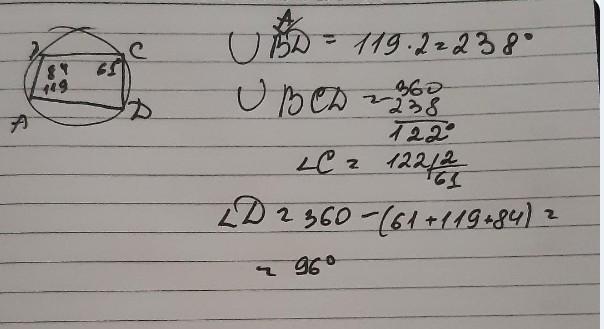 A
∪ BD = 119 · 2 = 238°
C
84
119
61°
A
D
∪ BCD = 360
238
122°
∠C = 122/2
61
∠D = 360 - (61 + 119 + 84) =
= 96°